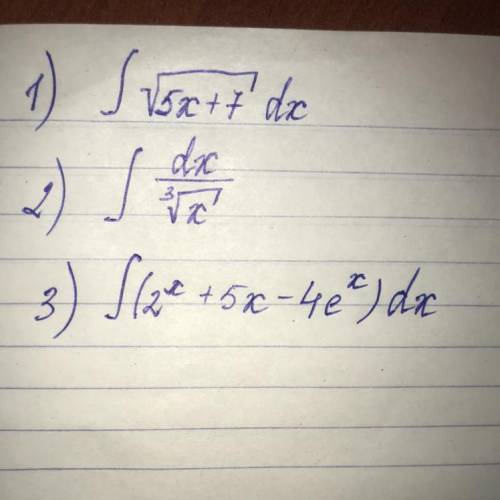 1) ∫ √(5x+7) dx
2) ∫ dx/∛x
3) ∫(2^x + 5x - 4e^x) dx